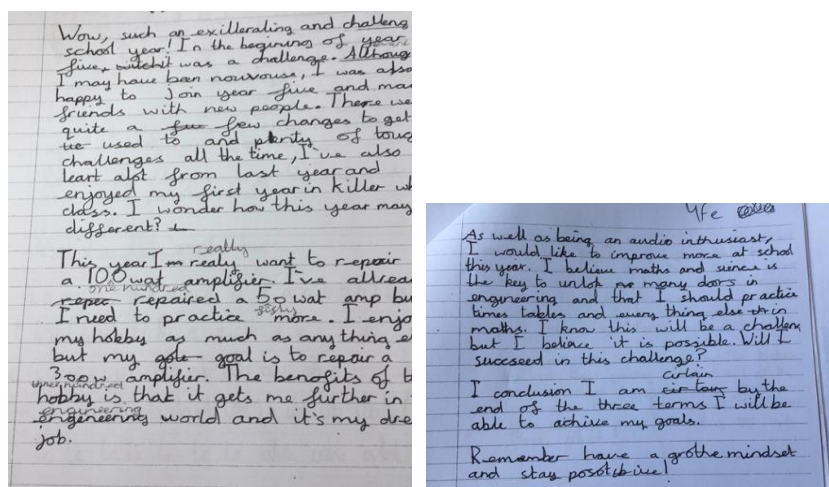 Wow, such an exillerating and challeng
school year! In the beginning of year
five, witchit was a challenge. Althoug
I may have been nouvouse, I was also
happy to join year five and ma
friends with new people. There we
quite a few few changes to get
used to and plenty of toug
challenges all the time, I've also
leart alot from last year and
enjoyed my first year in killer wh
class. I wonder how this year may
different?
really
This year I realy want to repair
a 100 wat amplifier. I've allrea
one hundred
repec repaired a 50 wat amp bu
fifty
I need to practice more. I enjo
my hobby as much as anything e
but my gole goal is to repair a
300w amplifier. The benofits of t
three hundred
hobby is that it gets me further in
engineering
engeneering world and it's my dre
job.
Yfe
As well as being an audio inthusiast,
I would like to improve more at school
this year. I believe maths and sience is
the key to unlok many doors in
engineering and that I should practice
times tables and every thing else in
maths. I know this will be a challeng
but I beliave it is possible. Will I
succseed in this challenge?
certain
I conclusion I am by the
end of the three terms I will be
able to achive my goals.
Remember have a grothe mindset
and stay posotive!